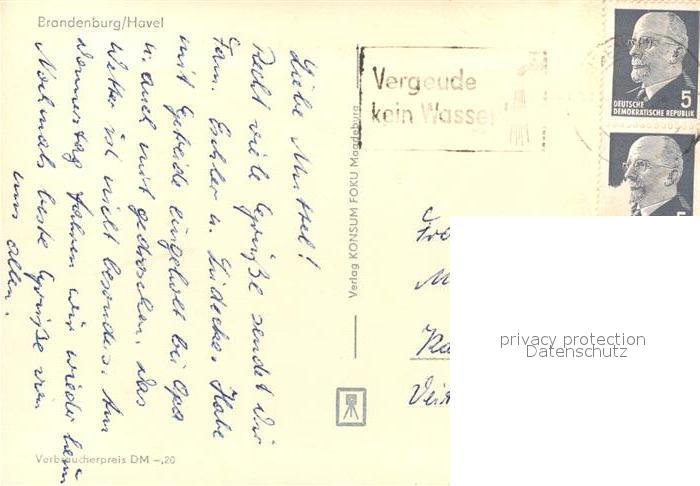 Brandenburg/Havel
Liebe Muttel!
Recht viele Grüße sendet Dir
Fam. Eichler u. Lüdecke. Habe
mit Getreide eingeholt bei Opa
u. auch mit gedroschen. Das
Wetter ist nicht besonders. Am
Donnerstag fahren wir wieder heim
Nochmals beste Grüße von
uns allen.
Verbraucherpreis DM –,20
Verlag KONSUM FOKU Magdeburg
Vergeude
kein Wasser!
5
DEUTSCHE
DEMOKRATISCHE REPUBLIK
5
privacy protection
Datenschutz